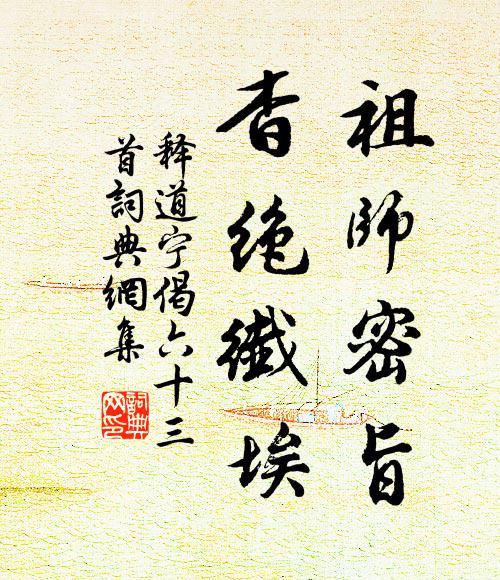 祖師密旨
杳絶纖埃
释道宁偈六十三
首詞典網集
詞典网印